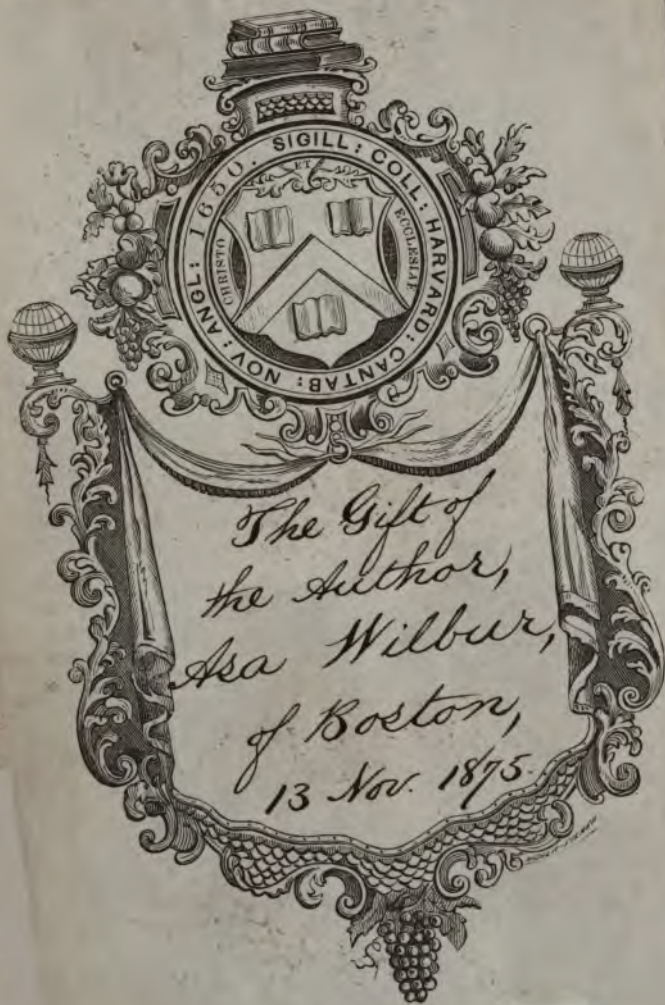 SIGILL: COLL: HARVARD: CANTAB: NOV: ANGL: 1650.
ET
CHRISTO
ECCLESIAE
The Gift of
the Author,
Asa Wilbur,
of Boston,
13 Nov. 1875.